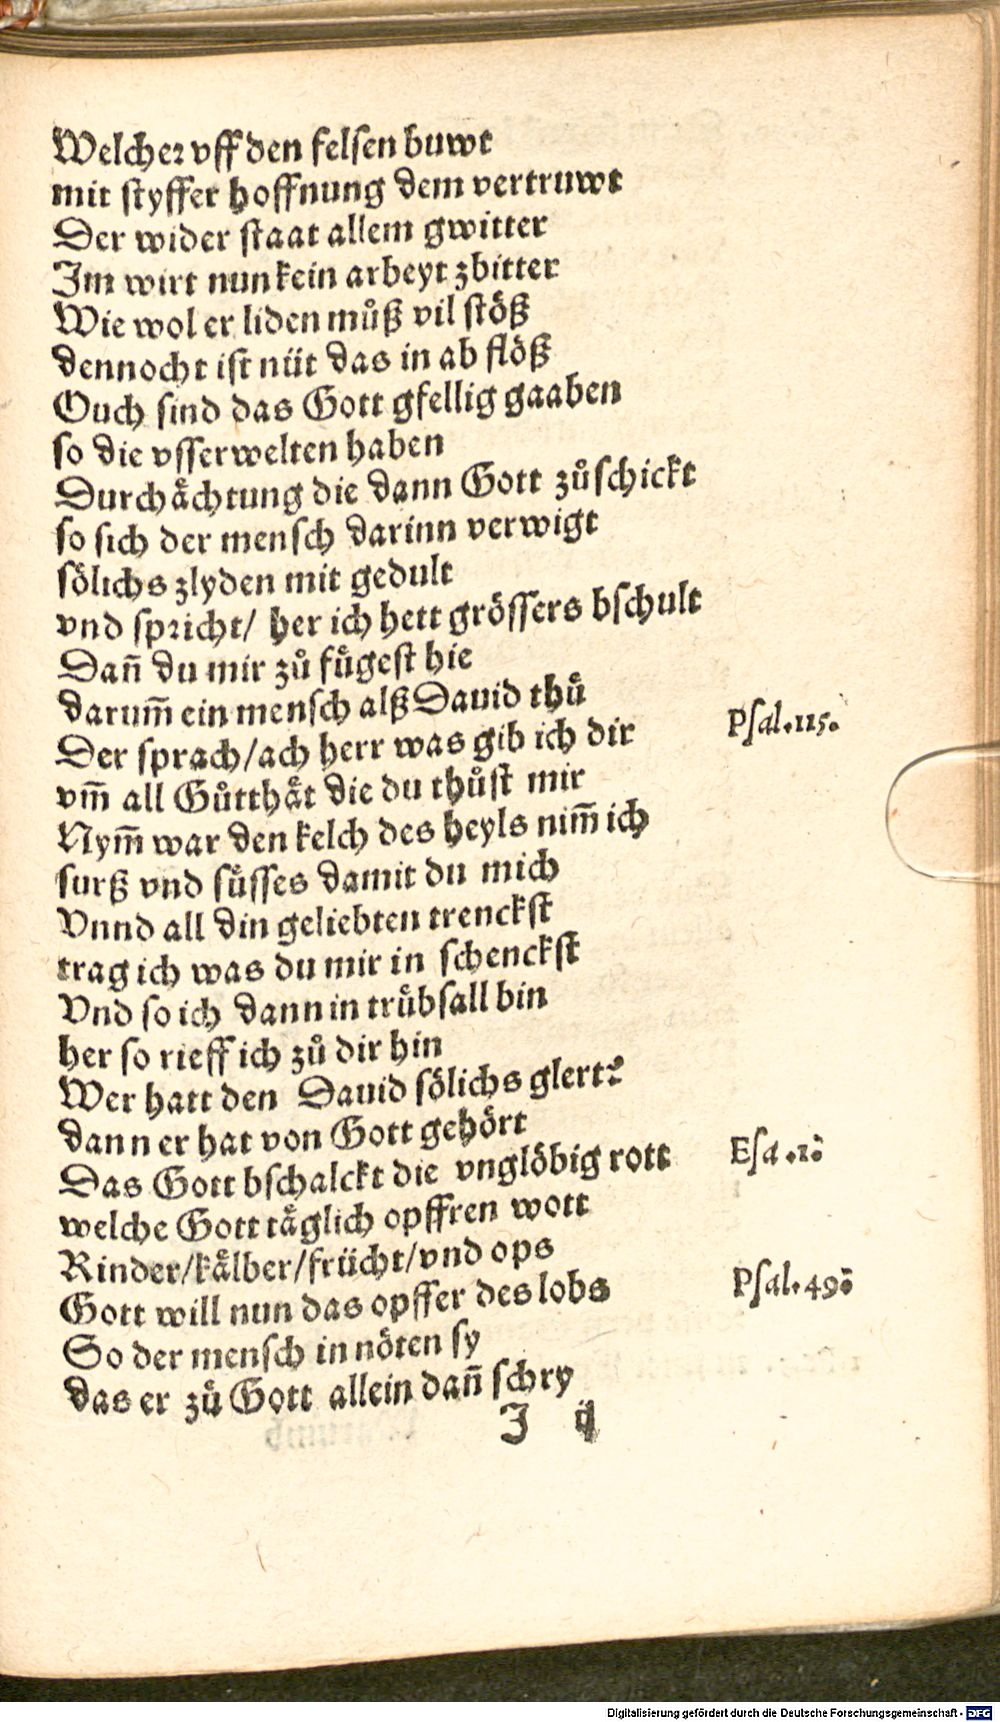 Welcher vff den felsen buwt
mit styffer hoffnung dem vertruwt
Der wider staat allem gwitter
Im wirt nun kein arbeyt zbitter
Wie wol er liden můß vil stöß
dennocht ist nüt das in ab flöß
Ouch sind das Gott gfellig gaaben
so die vsserwelten haben
Durchåchtung die dann Gott zůschickt
so sich der mensch darinn verwigt
sölichs zlyden mit gedult
vnd spricht/ her ich hett grössers bschult
Dañ du mir zů fůgest hie
darum̃ ein mensch alß Dauid thů
Der sprach/ach herr was gib ich dir
Psal.115.
vm̃ all Gůtthåt die du thůst mir
Nym̃ war den kelch des heyls nim̃ ich
surß vnd sůsses damit du mich
Vnnd all din geliebten trenckst
trag ich was du mir in schenckst
Vnd so ich dann in trůbsall bin
her so rieff ich zů dir hin
Wer hatt den Dauid sölichs glert?
dann er hat von Gott gehört
Das Gott bschalckt die vnglöbig rott
Esa.1.
welche Gott tåglich opffren wott
Rinder/kålber/frücht/vnd ops
Gott will nun das opffer des lobs
Psal.49.
So der mensch in nöten sy
das er zů Gott allein dañ schry
J ij
Digitalisierung gefördert durch die Deutsche Forschungsgemeinschaft - DFG